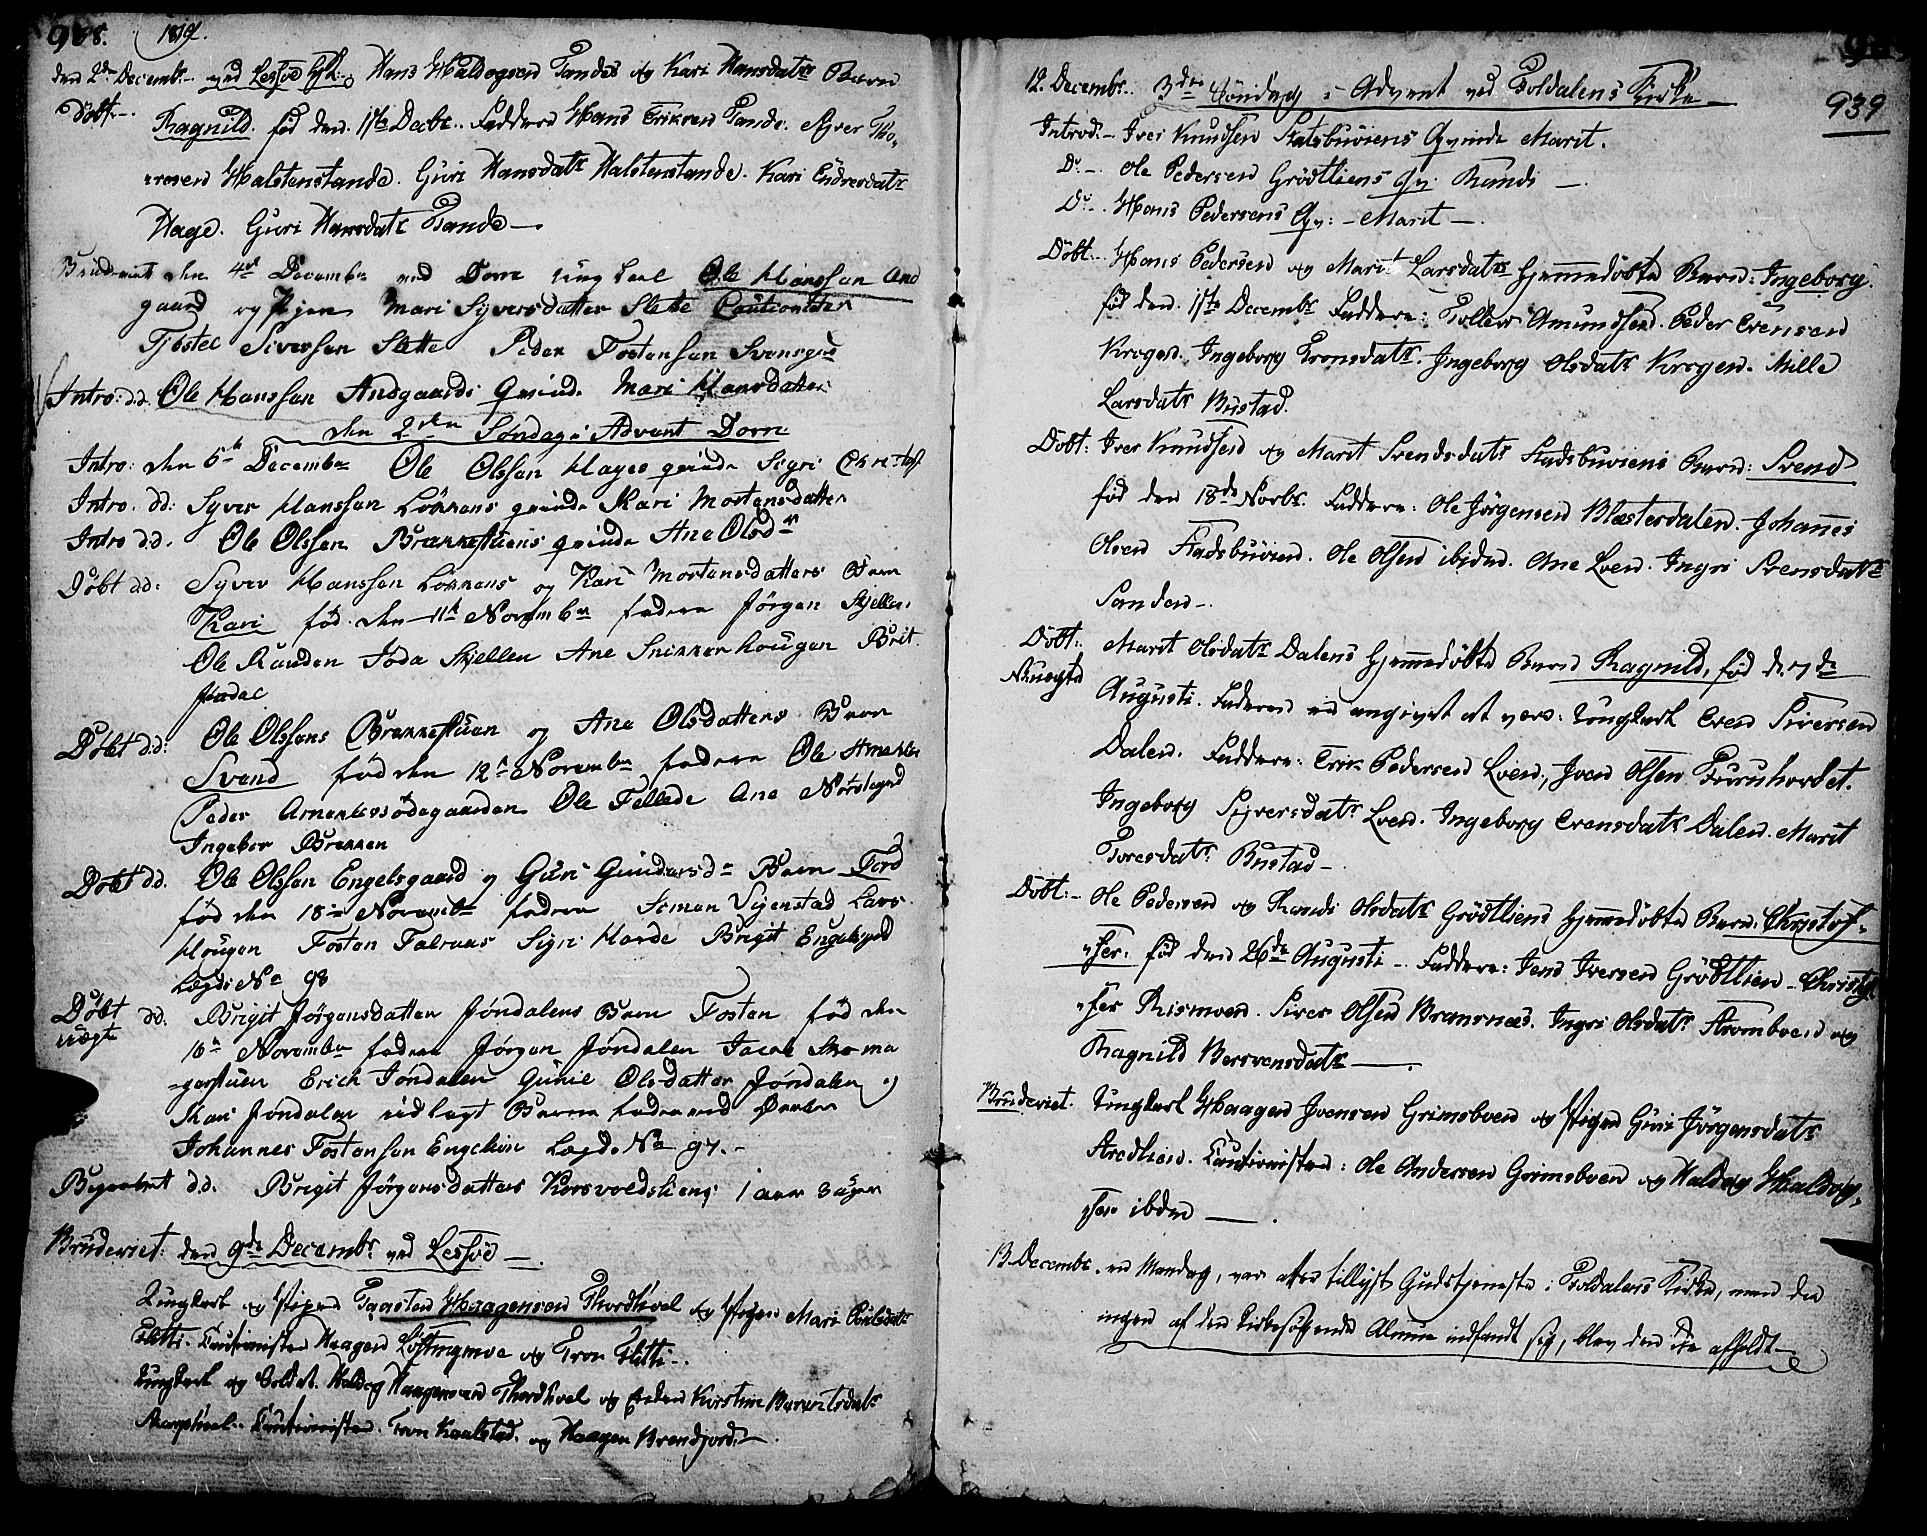 938. 1819.
den 2de Decembr. ved Lessøe Hk. Hans Haldogsen Tandes og Kari Hansdatr Barn
Døbt. Ragnild. fød den 1ste Decbr. Faddere Hans Eriksen Tande. Syver Tho-
resen Halstenstande. Guri Hansdatr Halstenstande. Kari Endresdatr
Hage. Guri Hansdatr Tande
den 4de December ved Dovre ung karl Ole Hanssen And
gaard og Pigen Mari Syversdatter Slette Cautionister
Tjøstel Siverssen Slette Peder Tostenssen
Intro: d.d. Ole Hanssen Andgaards qvinde Mari Hansdatter
den 2den Søndag i Advent Dovre
Intro: den 5te December Ole Olssen Hages qvinde Sigri
Intro. dd: Syver Hanssen Løkkens qvinde Kari Mortensdatter
Intro d.d. Ole Olssen Brækkestuens qvinde Ane Olsdr
Døbt dd: Syver Hanssen Løkkens og Kari Mortensdatters Barn
Kari fød den 11te November fadere Jörgen Skjellen
Ole Randen Joda Skjellen Ane Snikkerhougen Brit
Jindal
Döbt d.d: Ole Olssens Brækkestuen og Ane Olsdatters Barn
Svend fød den 12te November fadere Ole
Peder Ole Tellede Ane
Ingebor Brekken
Døbt dd. Ole Olssen Engelsgaard og Guri Gundersdr Barn Tord
fød den 18de November fadere Simen Lars
Hougen Tosten Sigri Horde Brigit Engelsgrd
Lægds No 98
Døbt dd. Brigit Jørgensdatter Jøndalens Barn Tosten fød den
uægte 16de November fadere Jørgen Jøndalen Jacob Skoma
gerstuen Erich Jøndalen Gunil Olsdatter Jøndalen og
Kari Jøndalen udlagt Barne fader
Johannes Tostenssen Lægds No 97.
Begravet d.d. Brigit Jørgensdatters 1 aar 3 uger
Bruderiet: den 9de Decembr ved Lessøe
Ungkarl og Pigen Taasten Haagensen Thordhoel og Pigen Mari
Flitti. Cautionister Haagen og Tron Flitti.
Ungkarl og Soldat. Haldog Haagensen Thordhoel og Enken Kirstine
Cautionister. Tron og Haagen
939
12. Decembr. 3die Søndag i Advent ved Foldalens Kirke
Introd. Iver Knudsen Stadsbuøiens Qvinde Marit.
Do. Ole Pedersen Grödtliens Qv: Randi
Do. Hans Pedersens Qv: Marit
Döbt. Hans Pedersen og Marit Larsdatrs hjemmedöbte Barn: Ingeborg.
fød den 1ste Decembr Faddere: Tollev Amundsen. Peder Evensen
Krogen. Ingeborg Tronsdatr. Ingeborg Olsdatr Krogen. Mille
Larsdatr Bustad.
Döbt: Iver Knudsen og Marit Svendsdatr Stadsbuøiens Barn: Svend
fød den 18de Novbr. Faddere: Ole Jörgensen Blæsterdalen. Johannes
Olsen Stadsbuøien. Ole Olsen ibidem. Ane Loen. Ingri Svensdatr
Sanden.
Döbt: Marit Olsdatr Dalens hjemmedöbte Barn Ragnild, fød d. 7de
Nuægte Augusti. Faderen er angivet at være: Ungkarl Even Siversen
Dalen. Faddere: Erik Pedersen Loen, Joen Olsen Furuhovdet.
Ingeborg Syversdatr Loen. Ingeborg Evensdatr Dalen. Marit
Toresdatr. Bustad
Döbt: Ole Pedersen og Randi Olsdatr Grödtliens hjemmedöbte Barn Christof-
fer. fød den 26de Augusti. Faddere: Jens Iversen Grödtlien. Christof-
fer Rismoen. Siver Olsen Brænnæs. Ingri Olsdatr Strømboen og
Ragnild Bersvensdatr
Bruderiet. Ungkarl Haagen Joensen Grimsboen og Pigen Guri Jörgensdatr
Cautionister: Ole Andersen Grimsboen og Haldog Haldog-
sen ibdm
13 Decembr. en Mandag, var atter tillyst Gudstjeneste i Foldalens Kirke, men da
ingen af den kirkesøgende Almue indfandt sig, blev den ikke afholdt